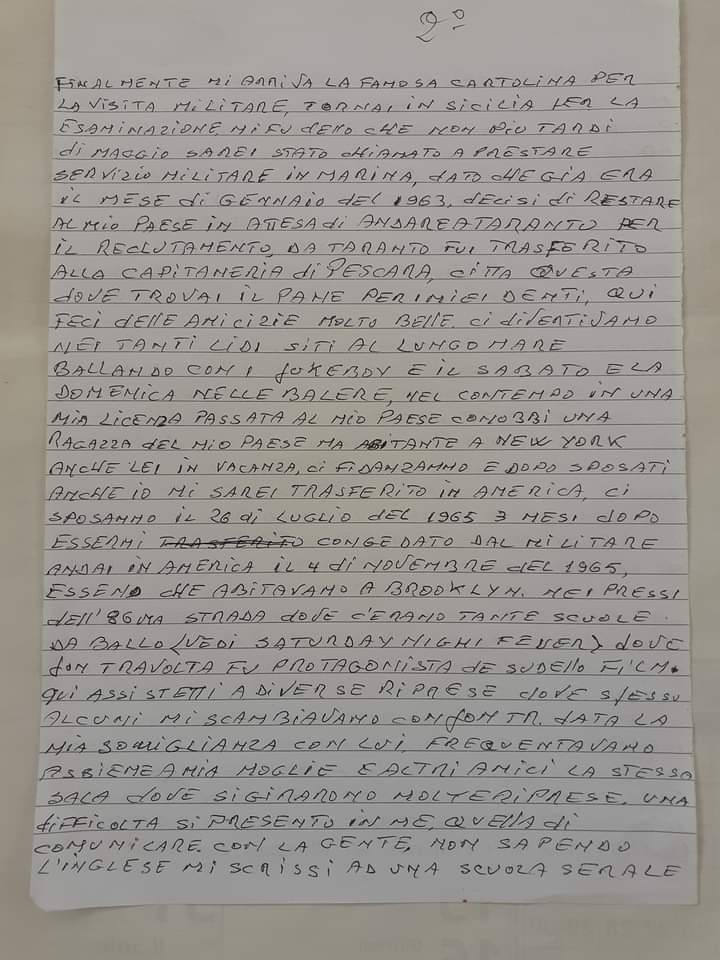 2º
FINALMENTE MI ARRIVA LA FAMOSA CARTOLINA PER
LA VISITA MILITARE, TORNAI IN SICILIA PER LA
ESAMINAZIONE, MI FU deTTO CHE NON PIU TARDI
di MAGGIO SAREI STATO CHIAMATO A PRESTARE
SERVIZIO MILITARE IN MARINA, DATO CHE GIA ERA
IL MESE di GENNAIO DEL 1963, decisi di RESTARE
AL MIO PAESE IN ATTESA di ANDARE A TARANTO PER
IL RECLUTAMENTO, DA TARANTO FUI TRASFERITO
ALLA CAPITANERIA di PESCARA, CITTA QUESTA
dOVE TROVAI IL PANE PER I MIEI DENTI, QUI
FECI dELLE AMICIZIE MOLTO BELLE. Ci diVERTIVAMO
NEI TANTI LIDI SITI AL LUNGO MARE
BALLANDO CON I JUKEBOX E IL SABATO E LA
DOMENICA NELLE BALERE, NEL CONTEMPO IN UNA
MIA LICENZA PASSATA AL MIO PAESE CONOBBI UNA
RAGAZZA dEL MIO PAESE MA ABITANTE A NEW YORK
ANCHE LEI IN VACANZA, Ci FIDANZAMMO E DOPO SPOSATI
ANCHE IO MI SAREI TRASFERITO IN AMERICA, Ci
SPOSAMMO IL 26 di LUGLIO DEL 1965 3 MESI dOPO
ESSERMI TRASFERITO CONGEDATO DAL MILITARE
ANDAI IN AMERICA IL 4 di NOVEMBRE DEL 1965,
ESSENO CHE ABITAVAMO A BROOKLYN. NEI PRESSI
dELL' 86MA STRADA dOVE C'ERANO TANTE SCUOLE
DA BALLO (VEDI SATURDAY NIGHI FEVER) dOVE
JON TRAVOLTA FU PROTAGONISTA DE SUDETTO FILM.
QUI ASSISTETTI A DIVERSE RIPRESE dOVE SPESSO
ALCUNI MI SCAMBIAVAMO CON JON TR. DATA LA
MIA SOMIGLIANZA CON LUI, FREQUENTAVAMO
ASSIEME A MIA MOGLIE E ALTRI AMICI LA STESSA
SALA dOVE SI GIRARONO MOLTE RIPRESE. UNA
diFFICOLTA SI PRESENTO IN ME, QUELLA di
COMUNICARE. CON LA GENTE, NON SAPENDO
L'INGLESE MI SCRISSI AD UNA SCUOLA SERALE